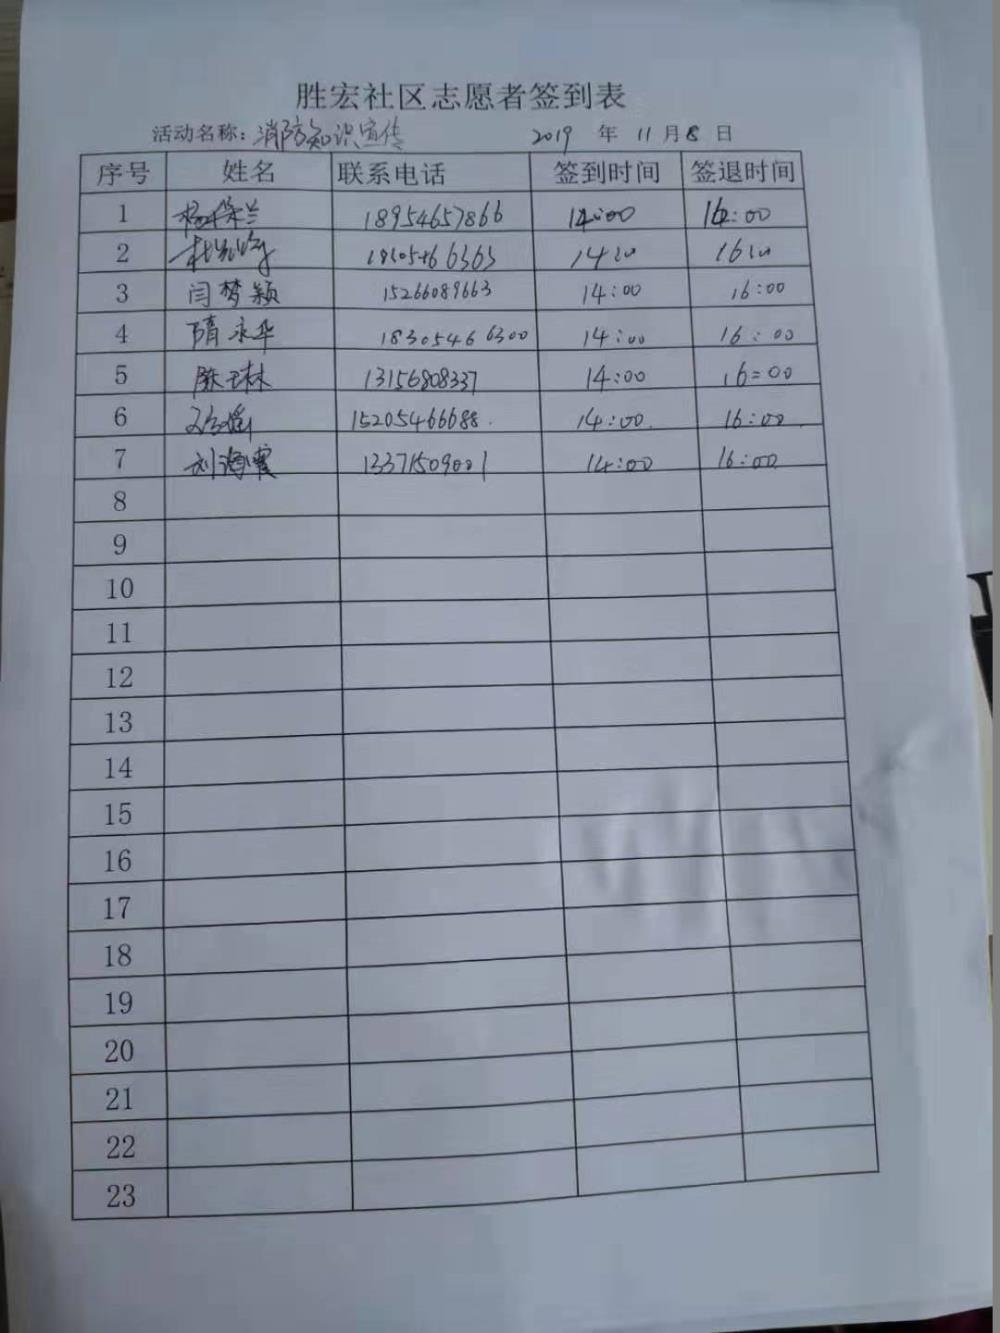 胜宏社区志愿者签到表
活动名称：消防知识宣传 2019 年 11 月 8 日
序号 姓名 联系电话 签到时间 签退时间
1 18954657866 14:00 16:00
2 14:00 16:00
3 闫梦颖 15266089663 14:00 16:00
4 隋永华 18305466300 14:00 16:00
5 陈玉林 13156808337 14:00 16:00
6 15205466688. 14:00. 16:00.
7 刘海霞 13371509001 14:00 16:00
8
9
10
11
12
13
14
15
16
17
18
19
20
21
22
23